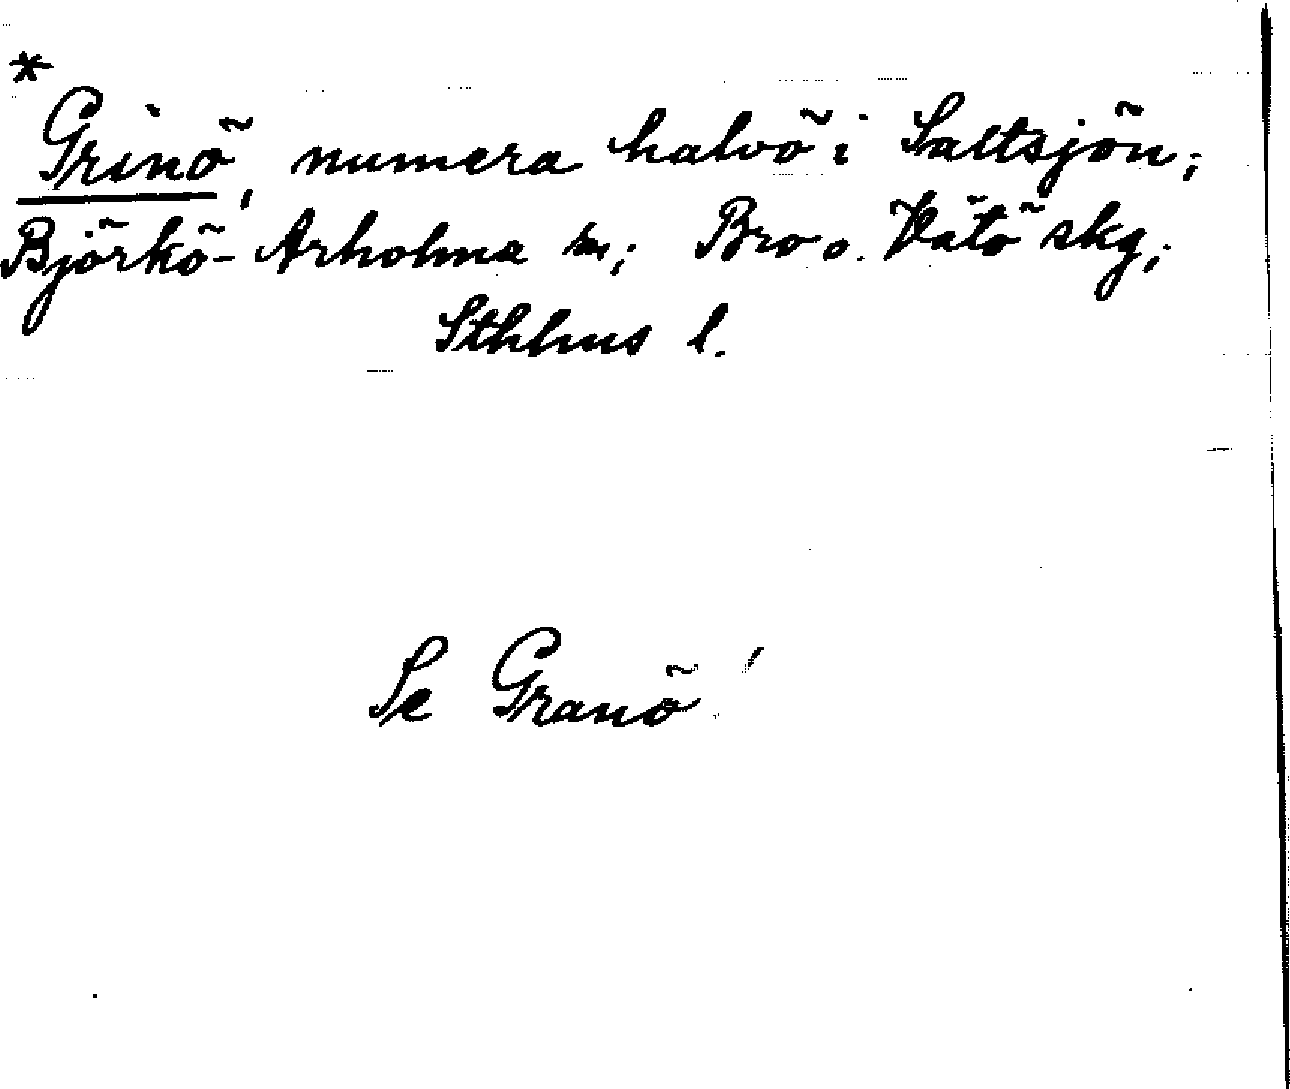 *
Grinö, numera halvö i Saltsjön;
Björkö-Arholma sn; Bro o. Vätö skg;
Sthlms l.
Se Granö!